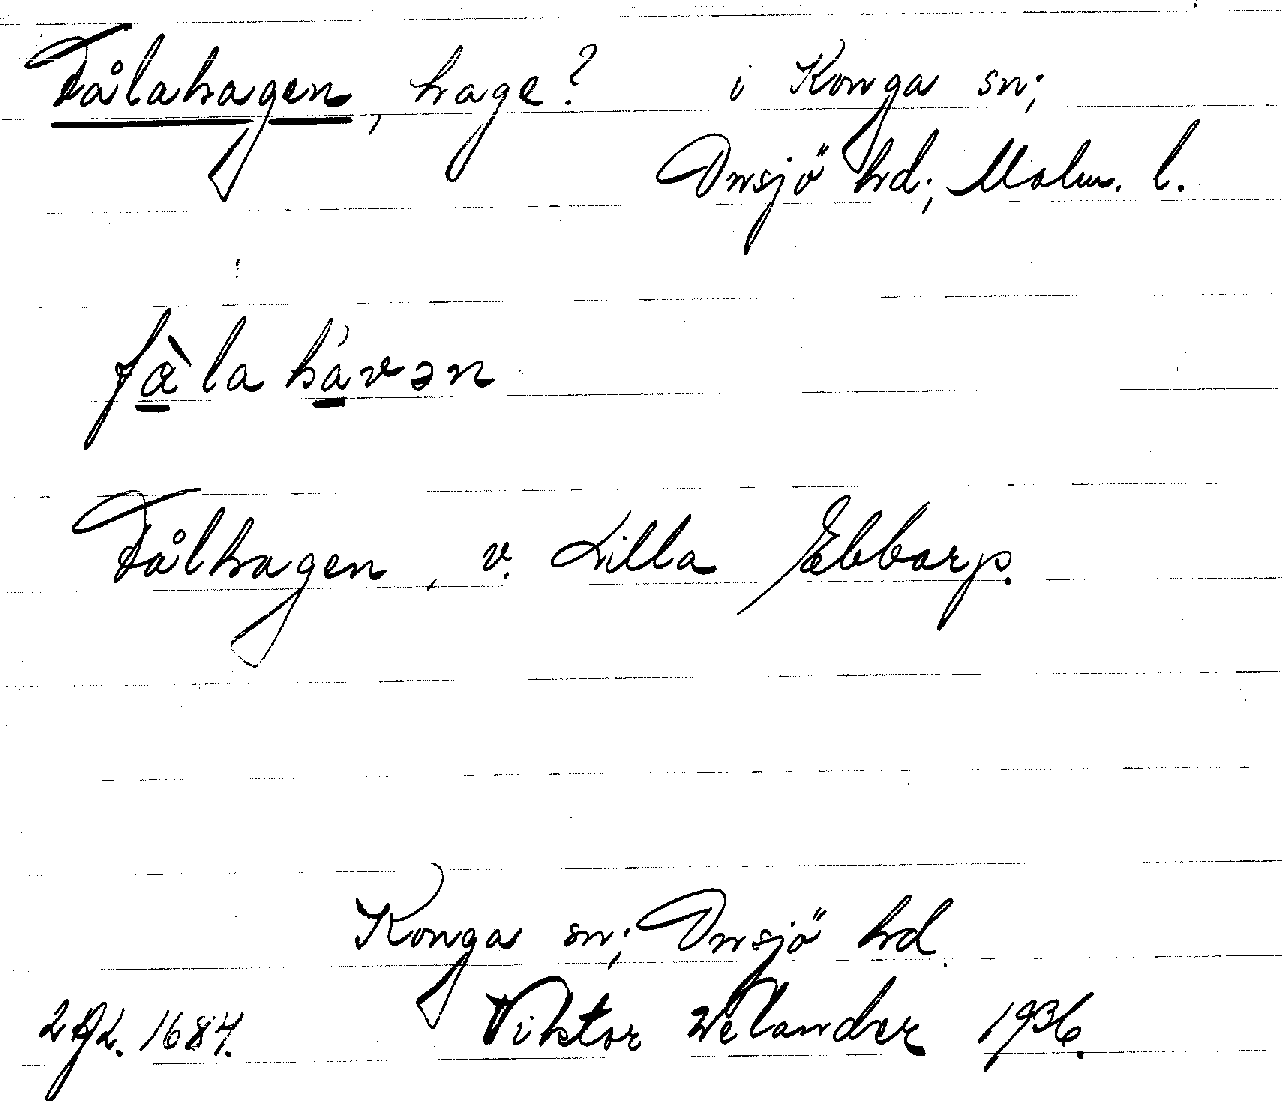 Fålahagen, hage? i Konga sn;
Onsjö hd; Malm. l.
fàla hávən
Fålhagen, v. Lilla Ebbarp.
Konga sn; Onsjö hd.
Viktor Welander 1936.